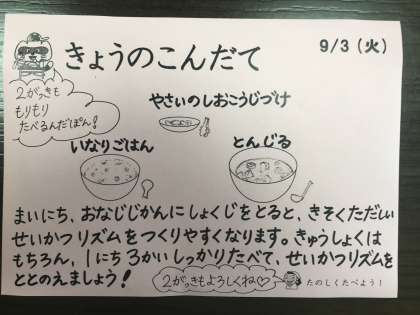 きょうのこんだて
9/3(火)
2がっきも
もりもり
たべるんだぽん!
やさいのしおこうじづけ
いなりごはん
とんじる
まいにち、おなじじかんにしょくじをとると、きそくただしい
せいかつリズムをつくりやすくなります。きゅうしょくは
もちろん、1にち3かいしっかりたべて、せいかつリズムを
ととのえましょう!
2がっきもよろしくね♡
たのしくたべよう!